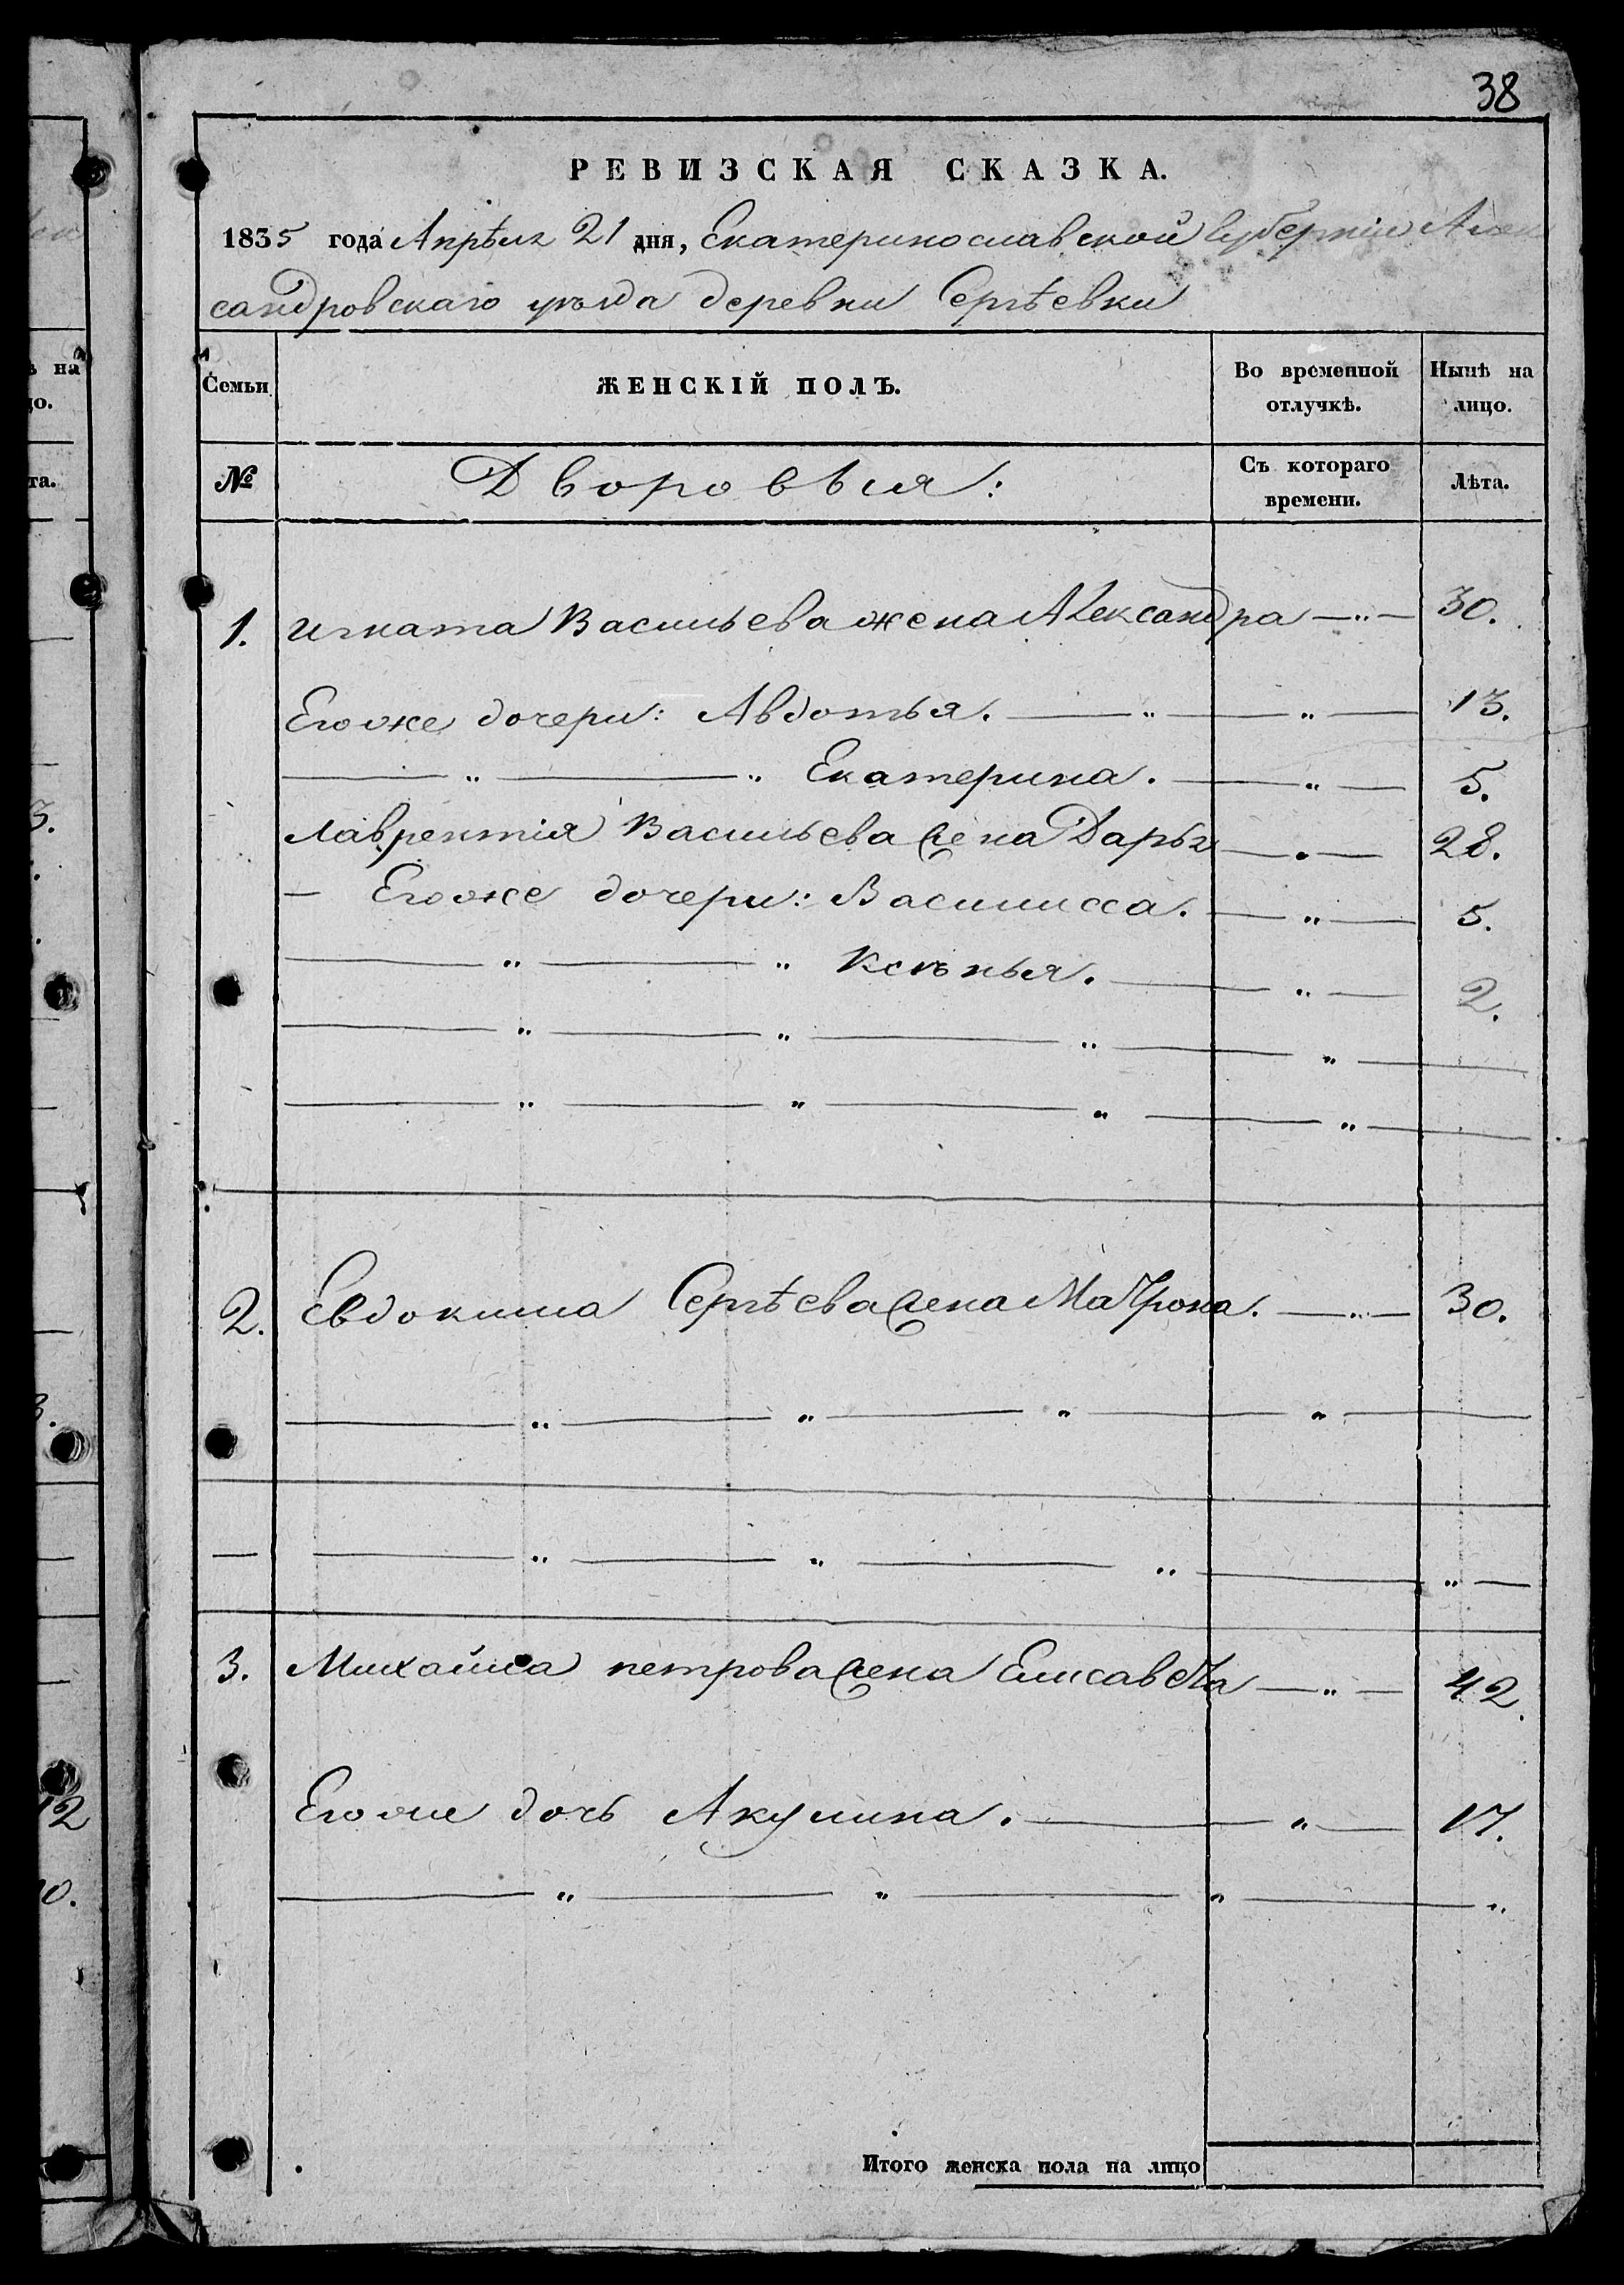 38
РЕВИЗСКАЯ СКАЗКА.
1835 года Апрѣля 21 дня, Екатеринославской Губерніи Алек
сандровскаго уѣзда деревни Сергѣевки
Семьи ЖЕНСКІЙ ПОЛЪ. Во временной отлучкѣ. Нынѣ на лицо.
№ Дворовыя: Съ котораго времени. Лѣта.
1. Игната Васильева жена Александра —„— 30.
Егоже дочери: Авдотья. —„— —„— 13.
—„— —„ Екатерина. —„— 5.
Лаврентія Васильева жена Дарья —„— 28.
— Егоже дочери: Василисса. —„— 5.
—„— —„ Ксѣнья. —„— 2.
—„— —„— —„— —„—
—„— —„— —„— —„—
2. Евдокима Сергѣева жена Матрона. —„— 30.
—„— —„— —„— —„—
— —„— —„— —„— —„—
3. Михайла петрова жена Елисавета —„— 42.
Егоже дочь Акулина. —„— 17.
—„— —„— —„— —„
Итого женска пола на лицо